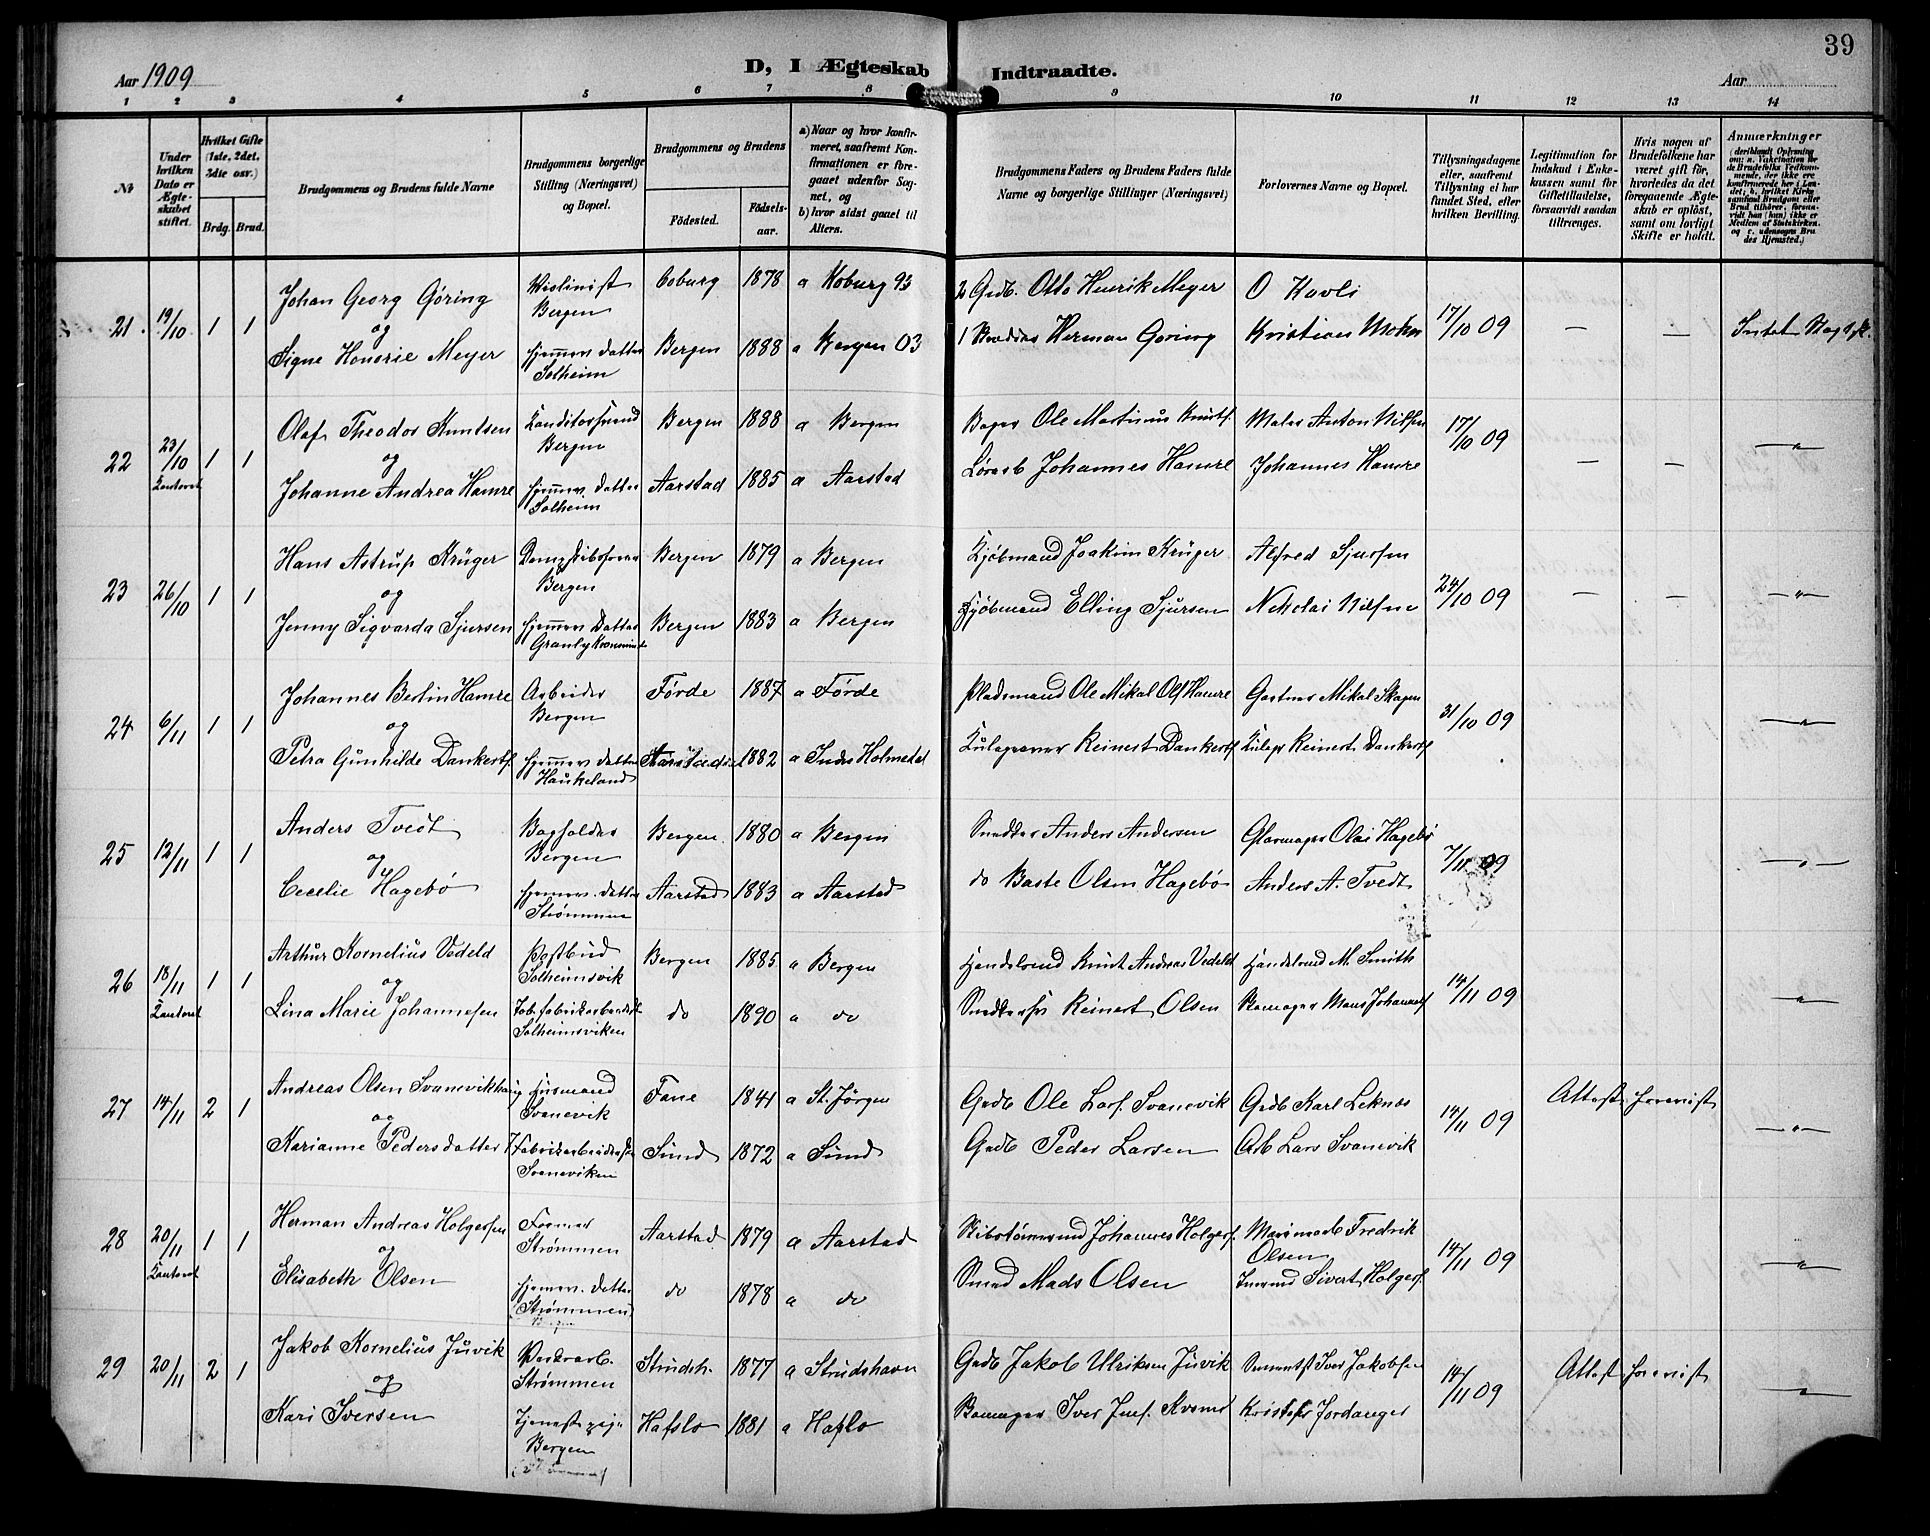 39
Aar 1909
D, I Ægteskab Indtraadte.
Aar
1 2 3 4 5 6 7 8 9 10 11 12 13 14
Nr
Under hvilken Dato er Ægteskabet stiftet.
Hvilket Gifte (1ste, 2det, 3die osv.)
Brdg. Brud.
Brudgommens og Brudens fulde Navne
Brudgommens borgerlige Stilling (Næringsvei) og Bopæl.
Brudgommens og Brudens
Födested. Födselsaar.
a) Naar og hvor konfirmeret, saafremt Konfirmationen er foregaaet udenfor Sognet, og
b) hvor sidst gaaet til Alters.
Brudgommens Faders og Brudens Faders fulde Navne og borgerlige Stillinger (Næringsvei)
Forlovernes Navne og Bopæl.
Tillysningsdagene eller, saafremt Tillysning ei har fundet Sted, efter hvilken Bevilling.
Legitimation for Indskud i Enkekassen samt for Giftetilladelse, forsaavidt saadan tiltrænges.
Hvis nogen af Brudefolkene har været gift før, hvorledes da det foregaaende Ægteskab er opløst, samt om lovligt Skifte er holdt.
Anmærkninger
21 19/10 1 1 Johan Georg Göring Violinist Bergen Coburg 1878 a Koburg 93 2 Grdb. Otto Henrik Meyer O Kavli 17/10 09 — — Intet
og
Signe Honorie Meyer hjemmev. datter Solheim Bergen 1888 a Bergen 03 1 Herman Göring Kristian Mohn
22 23/10 Kontoret 1 1 Olaf Theodor Knutsen Bergen Bergen 1888 a Bergen Bager Ole Martinus Knuts. Maler Anton Nilsen 17/10 09 — — — " —
og
Johanne Andrea Hamre hjemmev. datter Solheim Aarstad 1885 a Aarstad Johannes Hamre Johannes Hamre
23 26/10 1 1 Hans Astrup Krüger Bergen Bergen 1879 a Bergen Kjöbmand Joakim Krüger Alfred Sjursen 24/10 09 — — — " —
og
Jenny Sigvarda Sjursen hjemmev. Datter Granly Bergen 1883 a Bergen Kjöbmand Elling Sjursen Nikolai Nilsen
24 6/11 1 1 Johannes Berlin Hamre Arbeider Bergen Förde 1887 a Förde Pladsmand Ole Mikal Ols. Hamre Gartner Mikal Skagen 31/10 09 — " —
og
Petra Gunhilde Dankerts. hjemmev. datter Haukeland Aarstad 1882 a Indre Holmedal Reinert Dankerts. Reinert Dankerts.
25 12/11 1 1 Anders Tvedt Bogholder Bergen Bergen 1880 a Bergen Snedker Anders Andersen Glasmager Olai Hagebö 7/11 09 — " —
og
Cecelie Hagebö hjemmev. datter Strömmen Aarstad 1883 a Aarstad do Baste Olsen Hagebö Anders A. Tvedt
26 13/11 Kontoret 1 1 Arthur Kornelius Vedeld Postbud Solheimsvik Bergen 1885 a Bergen Handelsmd Knut Andreas Vedeld Handelsmd M. Smith 14/11 09 — " —
og
Lina Marie Johannesen Tob. fabrikarbeiderske Solheimsviken do 1890 a do Reinert Olsen Mons Johannes.
27 14/11 2 1 Andreas Olsen Svanevikhaug Husmand Svanevik Fane 1841 a St. Jörgen Grdb Ole Lars. Svanevik Grdb Karl Leknes 14/11 09 Attest forevist — " —
og
Karianne Pedersdatter Fabrikarbeiderske Svaneviken Sund 1872 a Sund Grdb Peder Larsen Arb Lars Svanevik
28 20/11 Kontoret 1 1 Herman Andreas Holgersen Former Strömmen Aarstad 1879 a Aarstad Johannes Holgers. Fredrik Olsen 14/11 09 — " —
og
Elisabeth Olsen hjemmev. datter (Strömmen) do 1878 a do Smed Mads Olsen Sivert Holgers.
29 20/11 2 1 Jakob Kornelius Juvik Verksarb. Strömmen Strudsh. 1877 a Strudshavn Grdb Jakob Ulriksen Juvik Iver Jakobsen 14/11 09 Attest forevist — " —
og
Kari Iversen Tjenestepige Bergen Hafslo 1881 a Hafslo Iver Jens. Kristofer Jordanger